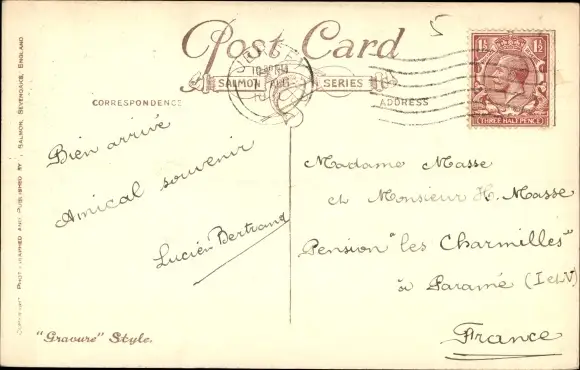 Post Card
SALMON SERIES
CORRESPONDENCE
ADDRESS
1½ 1½
THREE HALF PENCE
5
JERSEY
Bien arrivé
Amical souvenir
Lucien Bertrand
Madame Masse
et Monsieur H. Masse
Pension "les Charmilles"
à Paramé (I et V)
France
"Gravure" Style.
COPYRIGHT PHOTOGRAPHED AND PUBLISHED BY J. SALMON, SEVENOAKS, ENGLAND